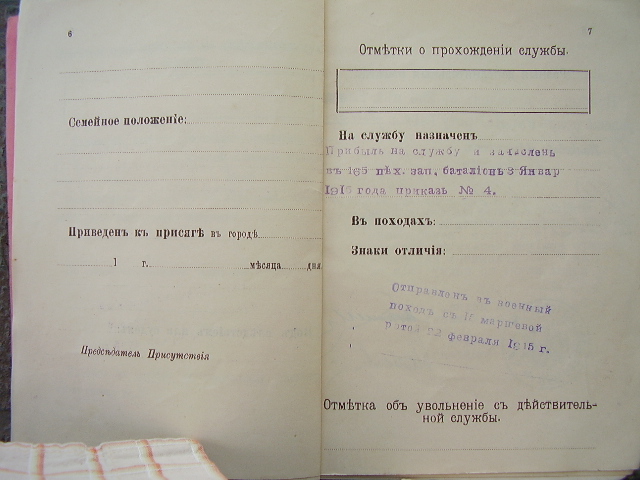 6
Семейное положеніе:
Приведен къ присягѣ въ городѣ
1 г. мѣсяца дня
Предсѣдатель Присутствія
7
Отмѣтки о прохожденіи службы.
На службу назначен
Прибылъ на службу и зачислень
въ 165 пѣх. зап. баталіонъ 3 Январ
1915 года приказъ № 4.
Въ походахъ:
Знаки отличія:
Отправленъ въ военный
походъ съ маршевой
ротой 22 февраля 1915 г.
Отмѣтка объ увольненіе съ дѣйствитель-
ной службы.